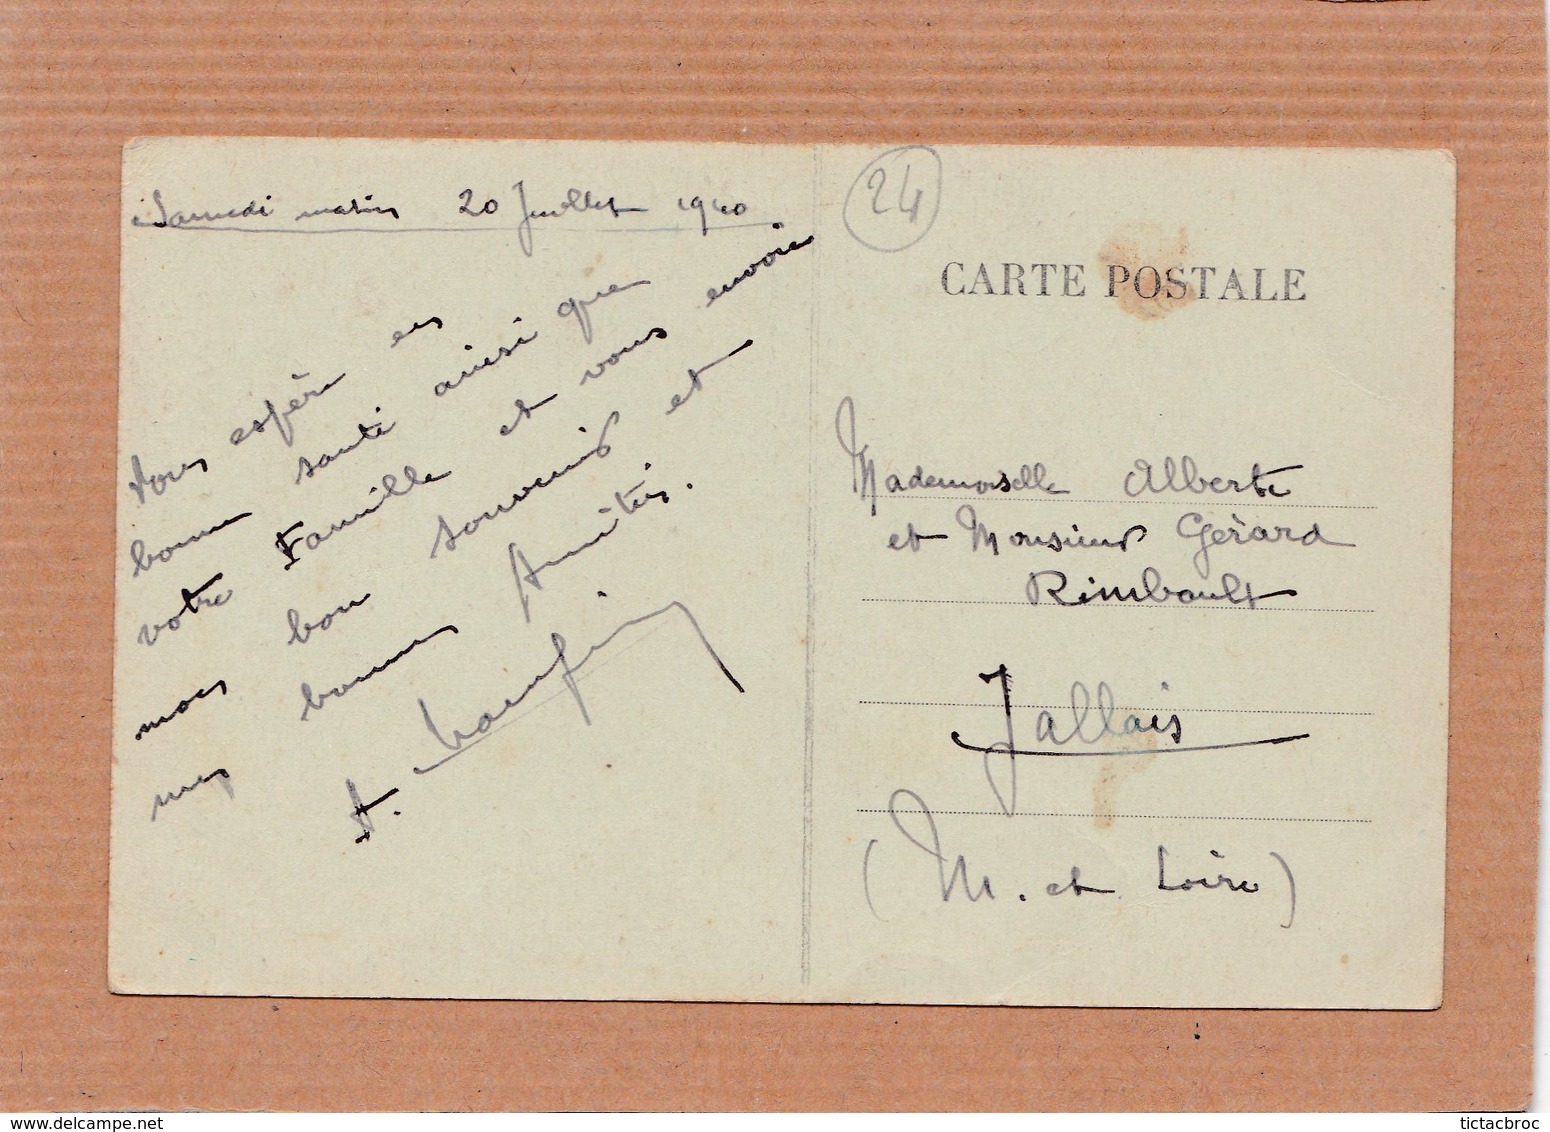 Samedi matin 20 Juillet 1940
Vous espère en
bonne santé ainsi que
votre Famille et vous envoie
mon bon souvenir et
mes bonnes Amitiés.
A.
24
CARTE POSTALE
Mademoiselle Alberte
et Monsieur Gérard
Rimbault
Jallais
(M. et Loire)
www.delcampe.net
tictacbroc